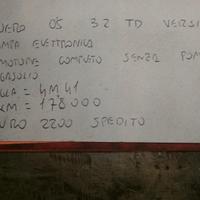 05 3.2 TD VERSI
ELETTRONICA
MOTORE COMPLETO SENZA POM
GASOLIO
= 4M41
KM = 178000
EURO 2200 SPEDITO